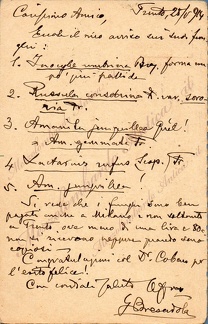 Carissimo Amico,
Trento, 25/5
Eccole il mio avviso sui suoi funghi:
1. Inocybe umbrina Bres. forma un po' più pallida
2. Russula consobrina Fr. var. sororia Fr.
3. Amanita junquillea Quél!
Am. gemmata Fr.
4. Lactarius rufus Scop. Fr.
5. Am. junquillea
Si vede che i funghi sono ben pagati anche a Milano; non soltanto a Trento, ove meno di una lira e 80
si ricevono neppure quando sono copiosi
Congratulazioni col Dr. Cobau per l'esito felice!
Con cordiali saluti
G. Bresadola